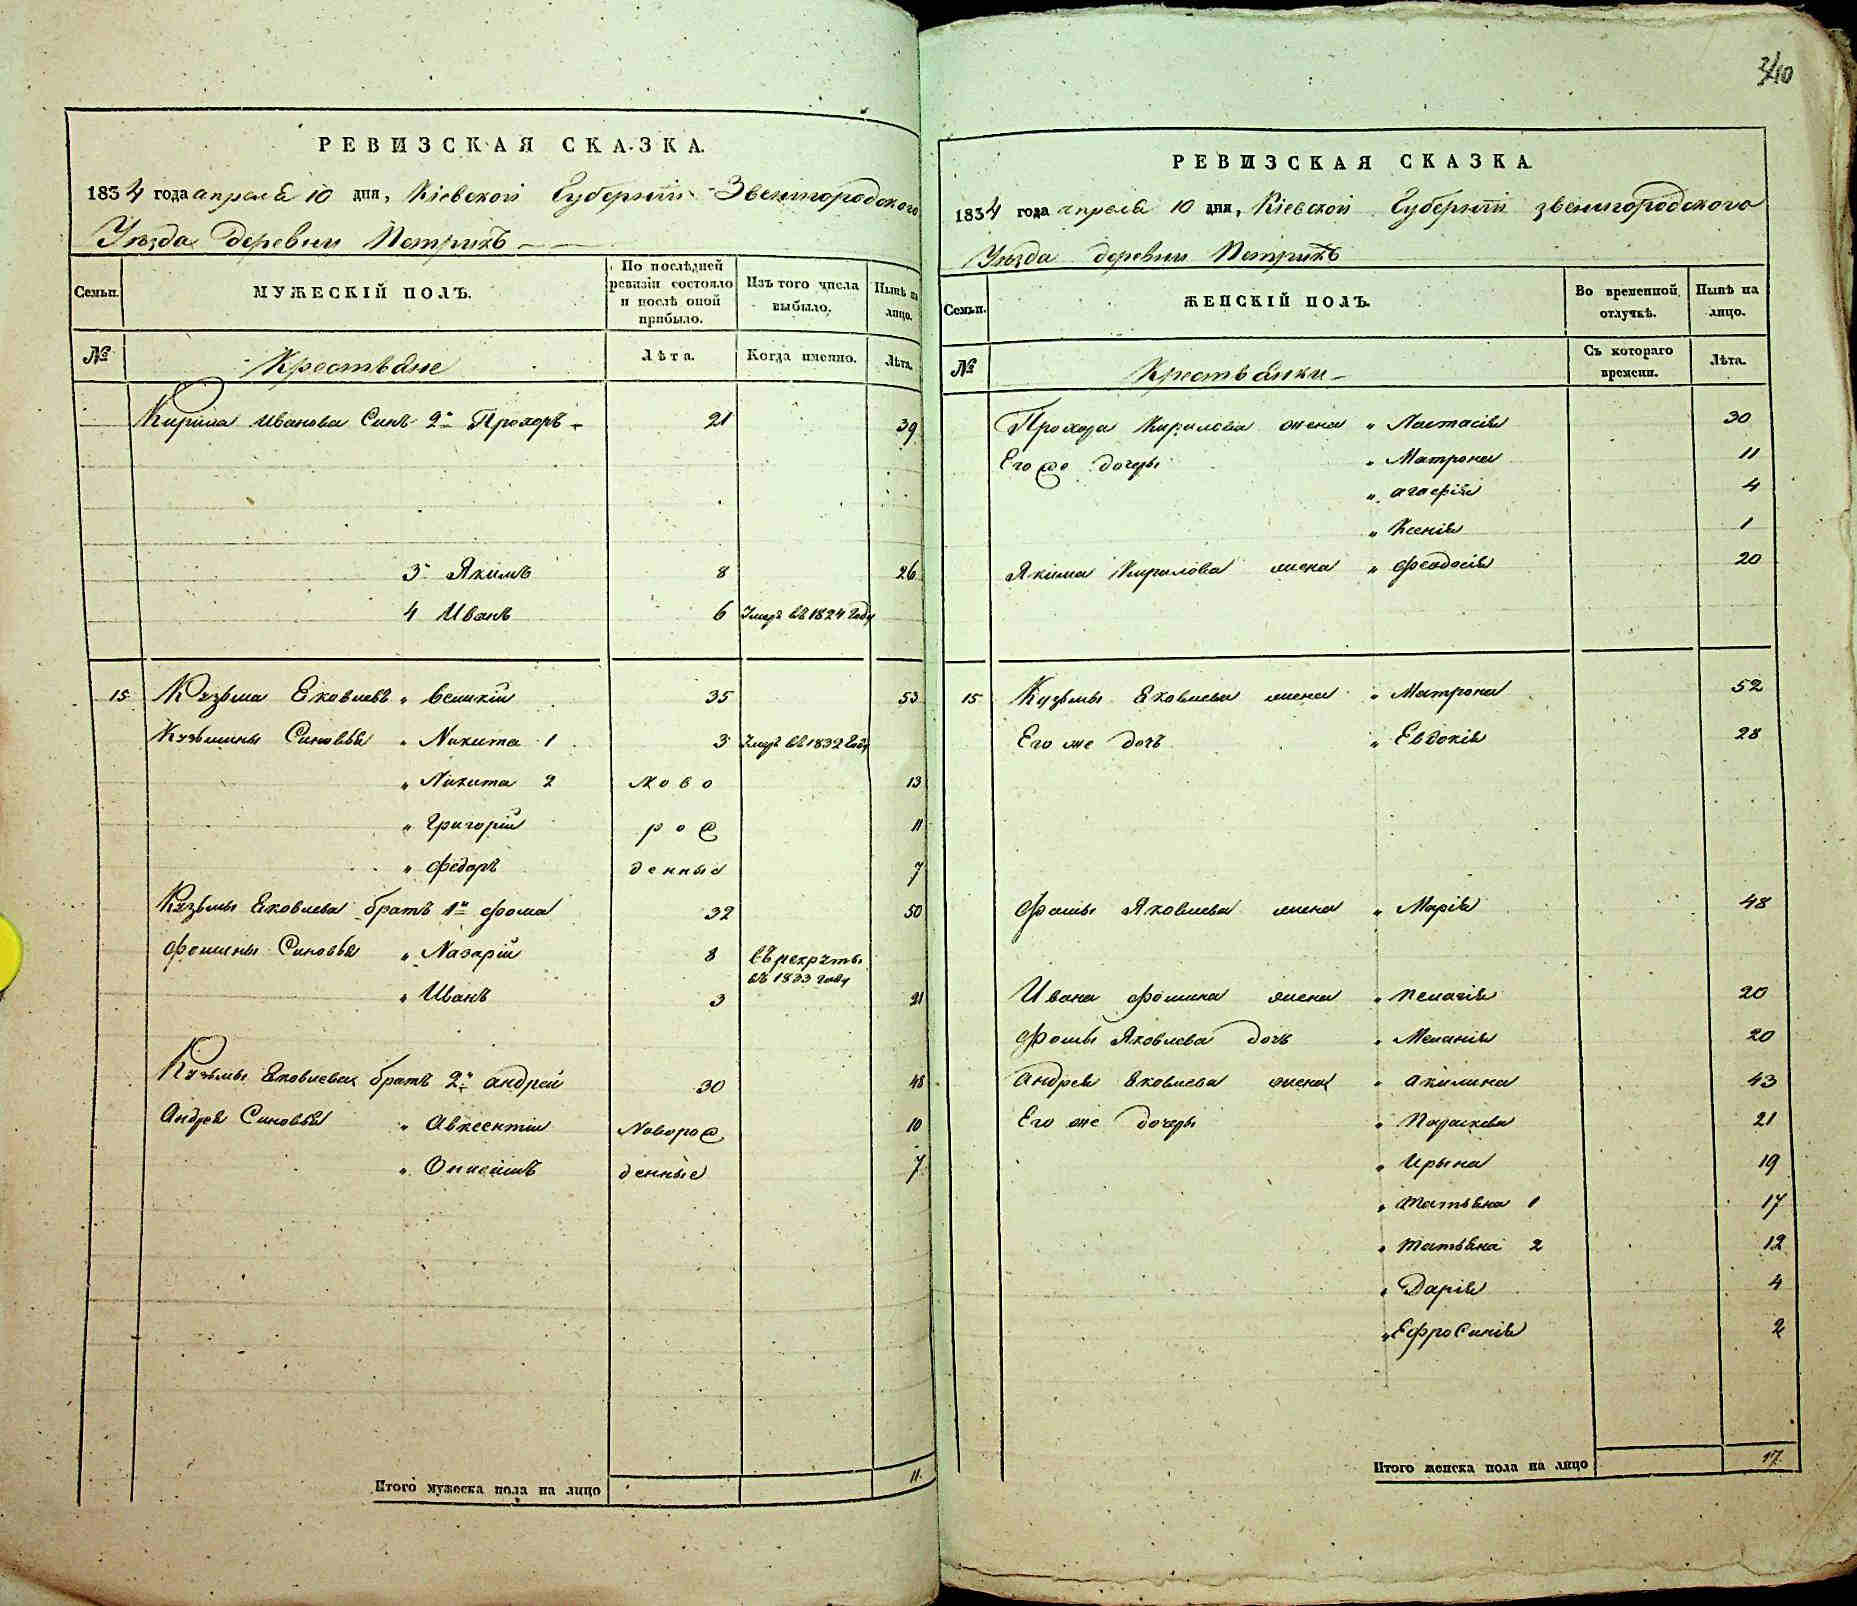 РЕВИЗСКАЯ СКАЗКА.
1834 года апреля 10 дня, Кіевской Губерніи Звенигородского
Уѣзда деревни Петрикъ
Семьи.
МУЖЕСКІЙ ПОЛЪ.
По послѣдней ревизіи состояло и послѣ оной прибыло.
Изъ того числа выбыло.
Нынѣ на лицо.
№
Крестьяне
Лѣта.
Когда именно.
Лѣта.
Кирила Иванова Синъ 2й Прохоръ 21 39
3 Якимъ 8 26
4 Иванъ 6 Умеръ въ 1824 году
15 Кузьма Яковлевъ " Великій 35 53
Кузьмины Синовья " Никита 1 3 Умеръ въ 1832 году
" Никита 2 ново 13
" Григорій рож 11
" Федоръ денные 7
Кузьмы Яковлева братъ 1й Фома 32 50
Фомины Синовья " Назарій 8 въ рекруты
въ 1833 году
" Иванъ 3 21
Кузьмы Яковлева братъ 2й Андрей 30 48
Андрея Синовья " АвксентійНоворож 10
" Онисимъ денные 7
Итого мужеска пола на лицо 11
3/10
РЕВИЗСКАЯ СКАЗКА.
1834 года апреля 10 дня, Кіевской Губерніи звенигородского
Уѣзда деревни Петрикъ
Семьи.
ЖЕНСКІЙ ПОЛЪ.
Во временной отлучкѣ.
Нынѣ на лицо.
№
Крестьянки
Съ котораго времени.
Лѣта.
Прохора Кирилова жена " Настасія 30
Его же дочеры " Матрона 11
" Агафія 4
" Ксенія 1
Якима Кирилова жена " Феодосія 20
15 Кузьмы Яковлева жена " Матрона 52
Его же дочь " Евдокія 28
Фомы Яковлева жена " Марія 48
Ивана Фомина жена " Пелагія 20
Фомы Яковлева дочь " Меланія 20
Андрея Яковлева жена " Акилина 43
Его же дочеры " Параскева 21
" Ирына 19
" Татьяна 1 17
" Татьяна 2 12
" Дарія 4
" Ефросинія 2
Итого женска пола на лицо 17